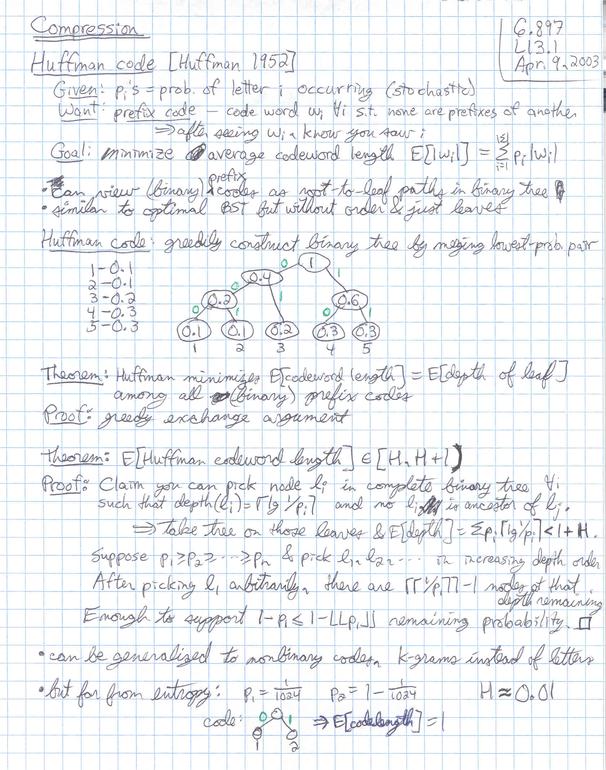 Compression
6.897
L13.1
Apr. 9, 2003
Huffman code [Huffman 1952]
Given: pᵢ's = prob. of letter i occurring (stochastic)
Want: prefix code – code word wᵢ ∀i s.t. none are prefixes of another
⇒ after seeing wᵢ, know you saw i
Goal: minimize average codeword length E[|wᵢ|] = Σ_{i=1}^{|Σ|} pᵢ|wᵢ|
• can view (binary) prefix codes as root-to-leaf paths in binary tree
• similar to optimal BST but without order & just leaves
Huffman code: greedily construct binary tree by meging lowest-prob. pair
1-0.1
2-0.1
3-0.2
4-0.3
5-0.3
1
0 1
0.4
0 1
0.2 0.6
0 1 0 1
0.1 0.1 0.2 0.3 0.3
1 2 3 4 5
Theorem: Huffman minimizes E[codeword length] = E[depth of leaf]
among all (binary) prefix codes
Proof: greedy exchange argument
Theorem: E[Huffman codeword length] ∈ [H, H+1)
Proof: Claim you can pick node lᵢ in complete binary tree ∀i
such that depth(lᵢ) = ⌈lg 1/pᵢ⌉ and no lᵢ is ancestor of lⱼ.
⇒ take tree on those leaves & E[depth] = Σpᵢ⌈lg 1/pᵢ⌉ < 1 + H.
Suppose p₁ ≥ p₂ ≥ ··· ≥ pₙ & pick l₁, l₂, ··· in increasing depth order
After picking l₁ arbitrarily, there are ⌈⌈1/p₁⌉⌉-1 nodes of that
depth remaining.
Enough to support 1-p₁ ≤ 1-⌊⌊p₁⌋⌋ remaining probability. □
• can be generalized to nonbinary codes, k-grams instead of letters
• but far from entropy: p₁ = 1/1024 p₂ = 1 - 1/1024 H ≈ 0.01
code: 0 1 ⇒ E[code length] = 1
1 2